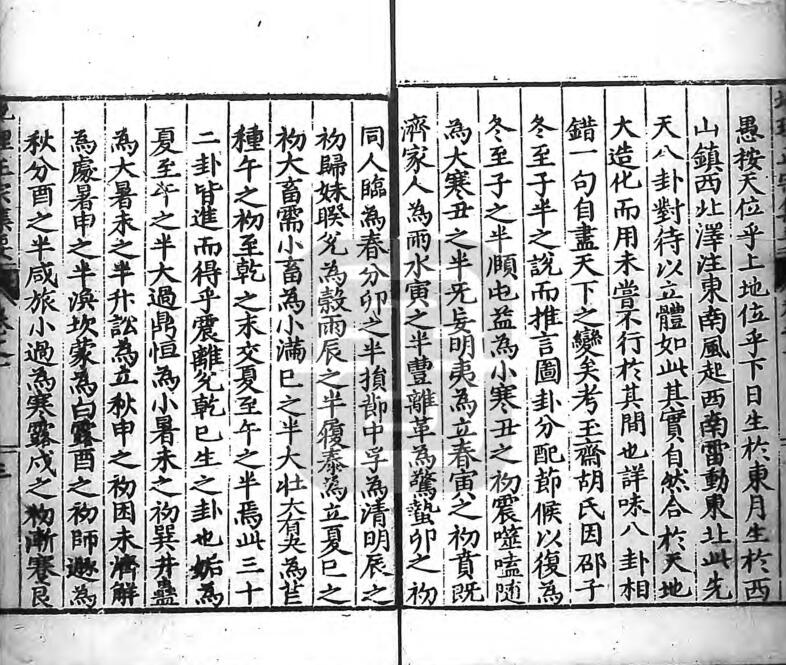 愚按天位乎上地位乎下日生於東月生於西
山鎮西北澤注東南風起西南雷動東北此先
天八卦對待以立體如此其實自然合於天地
大造化而用未嘗不行於其間也詳味八卦相
錯一句自盡天下之變矣考玉齋胡氏因邵子
冬至子半之說而推言圖卦分配節候以復為
冬至子之半頤屯益為小寒丑之初震噬嗑隨
為大寒丑之半旡妄明夷為立春寅之初賁既
濟家人為雨水寅之半豐離革為驚蟄卯之初
同人臨為春分卯之半損節中孚為清明辰之
初歸妹睽兌為穀雨辰之半履泰為立夏巳之
初大畜需小畜為小滿巳之半大壯大有夬為芒
種午之初至乾之末交夏至午之半焉此三十
二卦皆進而得乎震離兌乾已生之卦也姤為
夏至午之半大過鼎恒為小暑未之初巽井蠱
為大暑未之半升訟為立秋申之初困未濟解
為處暑申之半渙坎蒙為白露酉之初師遯為
秋分酉之半咸旅小過為寒露戌之初漸蹇艮